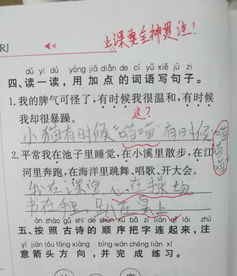 RJ
上课要全神贯注！
dú yi dú yòng jiā diǎn de cí yǔ xiě jù zi
四、读一读，用加点的词语写句子。
1.我的脾气可怪了，有时候我很温和，有时候
我却很暴躁。
这?
小猫有时候喵喵 有时候
2.平常我在池子里睡觉，在小溪里散步，在江
河里奔跑，在海洋里跳舞、唱歌、开大会。
àn zhào gǔ shī de shùn xù bǎ zì lián qǐ lái zhù
五、按照古诗的顺序把字连起来，注
yì jiàn tóu fāng xiàng bìng wán chéng liàn xí
意箭头方向，并完成练习。